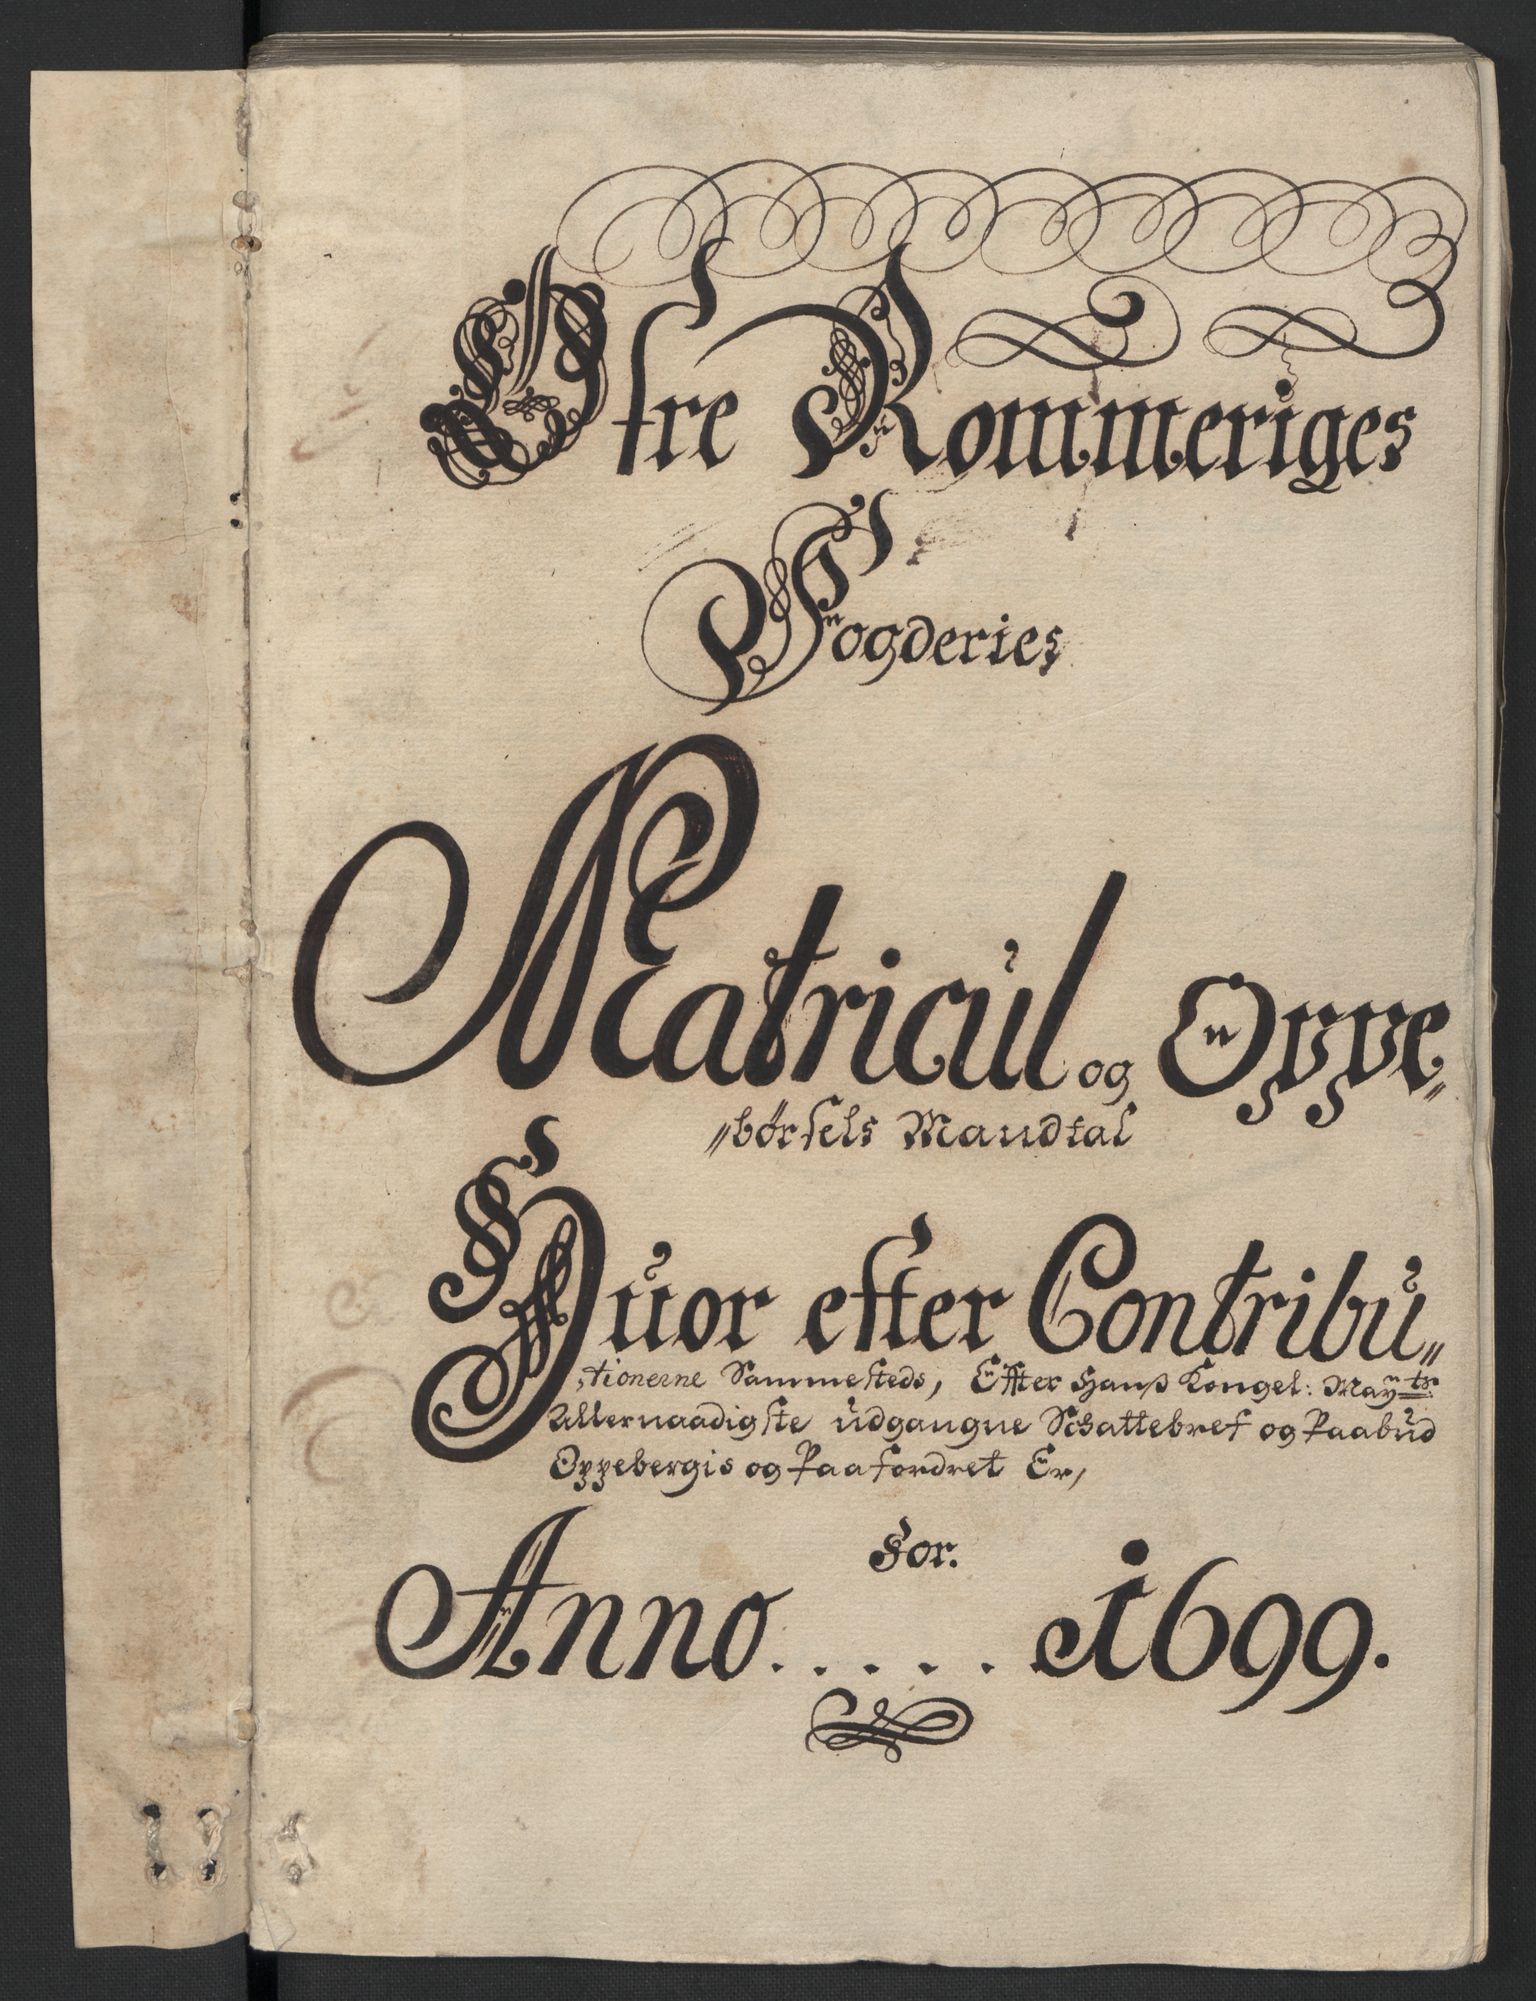 Øfre Rommeriges
Fogderies
Matricul og Oppe„
„børsels Mandtal
Huor efter Contribu„
„tionerne Sammesteds, Effter Hanß Kongel: Mayts:
Allernaadigste udgangne Schattebref og Paabud
Oppebergis og Paafordret Er,
For.
Anno..... 1699.